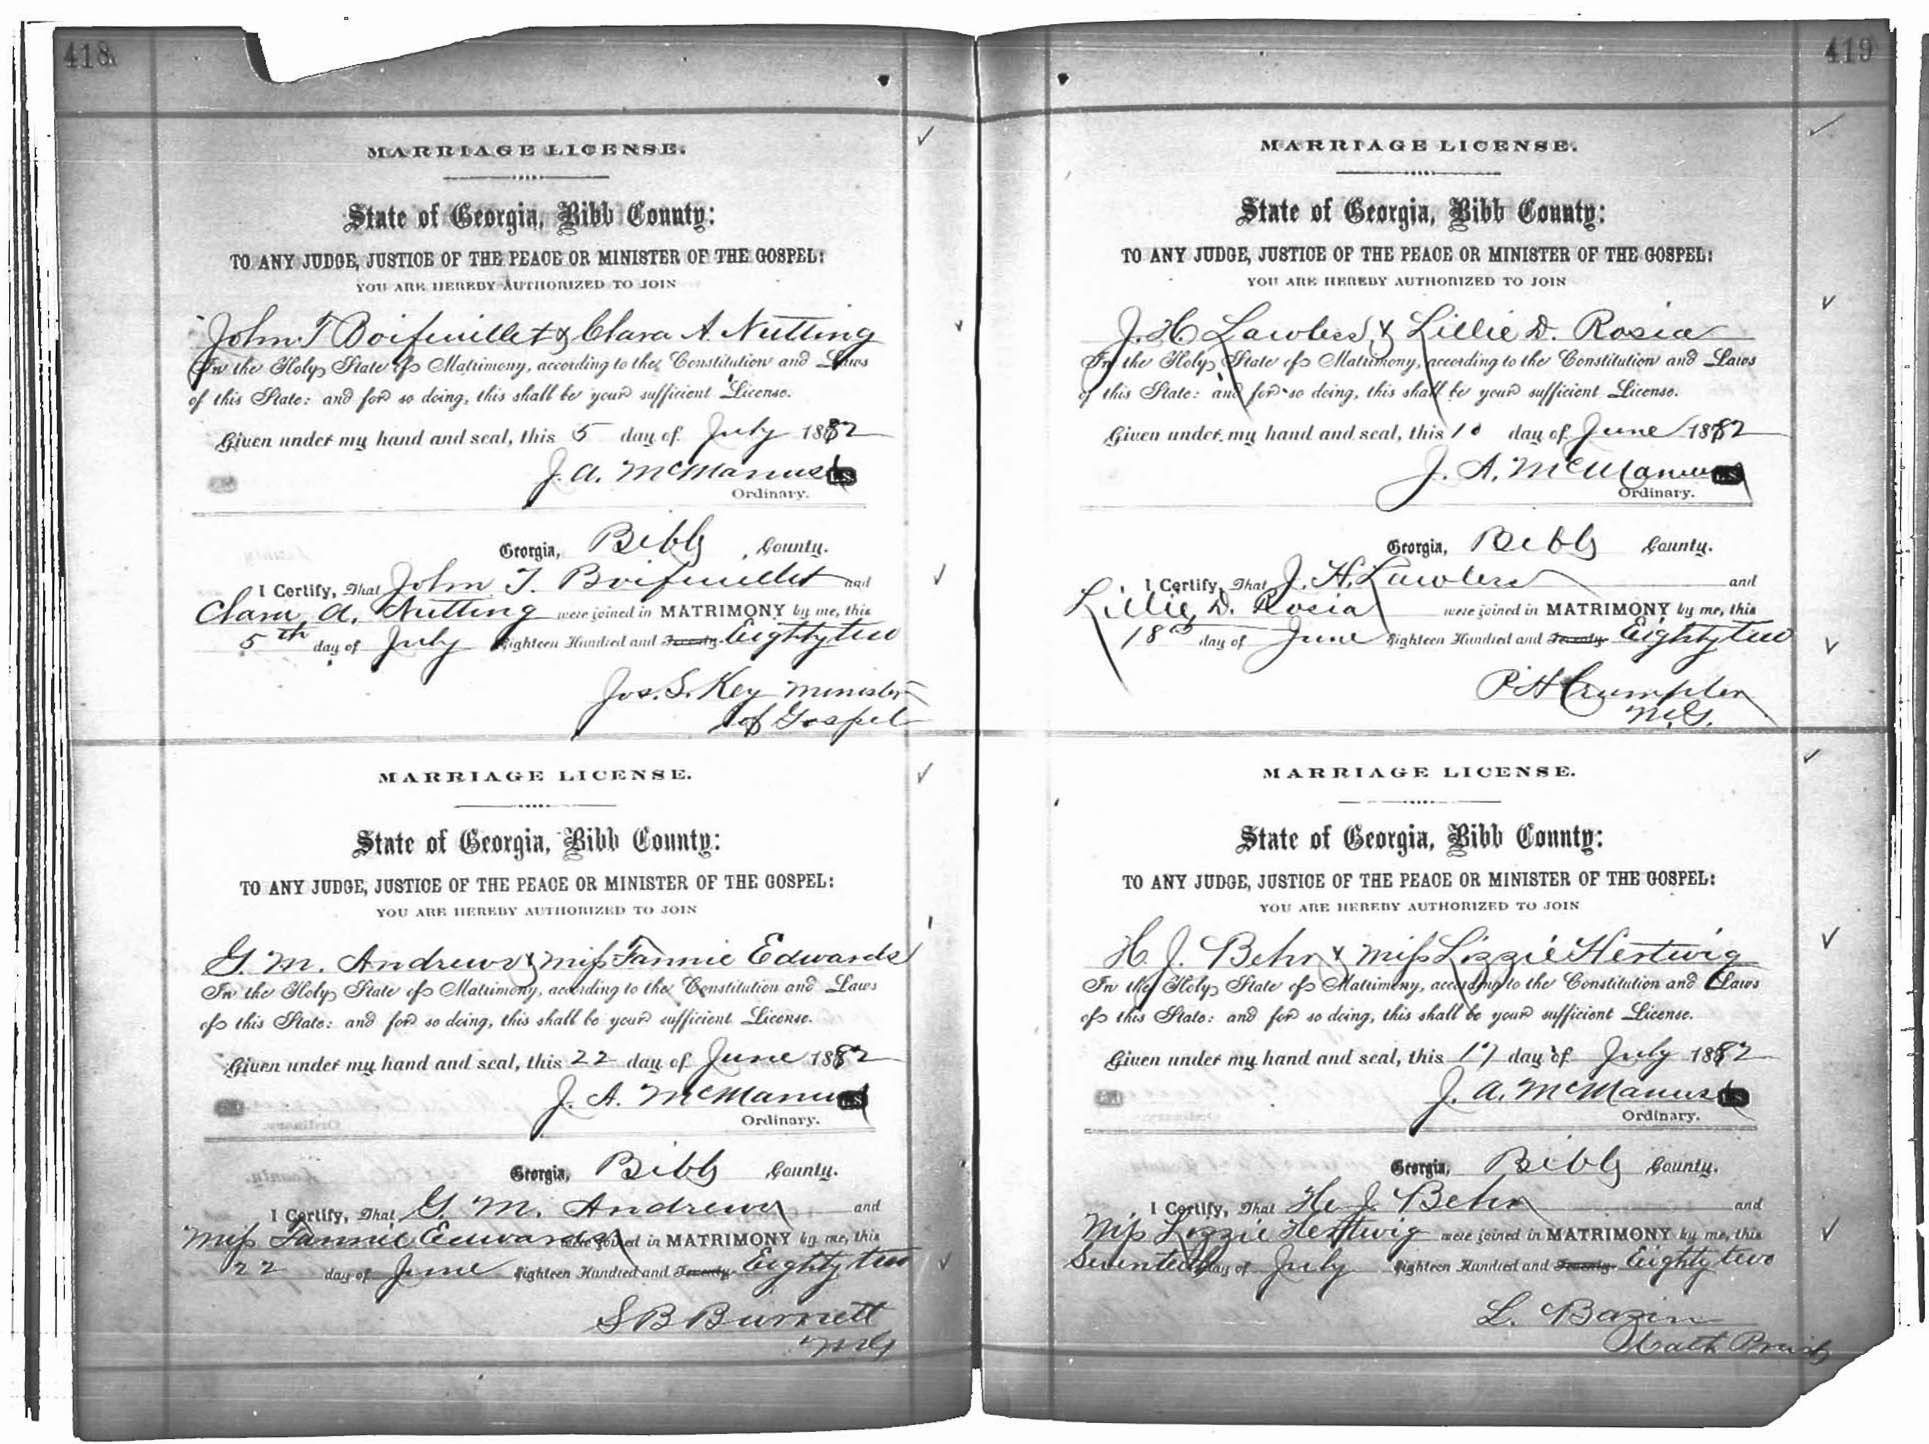 418
MARRIAGE LICENSE.
State of Georgia, Bibb County:
TO ANY JUDGE, JUSTICE OF THE PEACE OR MINISTER OF THE GOSPEL:
YOU ARE HEREBY AUTHORIZED TO JOIN
John T Boifeuillet & Clara A. Nutting
In the Holy State of Matrimony, according to the Constitution and Laws
of this State: and for so doing, this shall be your sufficient License.
Given under my hand and seal, this 5 day of July 1882
J. A. McManus L.S.
Ordinary.
Georgia, Bibb County.
I Certify, That John T. Boifeuillet and
Clara A. Nutting were joined in MATRIMONY by me, this
5th day of July Eighteen Hundred and Seventy Eighty two
Jos. S. Key Minister
of Gospel
MARRIAGE LICENSE.
State of Georgia, Bibb County:
TO ANY JUDGE, JUSTICE OF THE PEACE OR MINISTER OF THE GOSPEL:
YOU ARE HEREBY AUTHORIZED TO JOIN
G. M. Andrews & Miss Fannie Edwards
In the Holy State of Matrimony, according to the Constitution and Laws
of this State: and for so doing, this shall be your sufficient License.
Given under my hand and seal, this 22 day of June 1882
J. A. McManus L.S.
Ordinary.
Georgia, Bibb County.
I Certify, That G. M. Andrews and
Miss Fannie Edwards were joined in MATRIMONY by me, this
22 day of June Eighteen Hundred and Seventy Eighty two
S B Burnett
MG
419
MARRIAGE LICENSE.
State of Georgia, Bibb County:
TO ANY JUDGE, JUSTICE OF THE PEACE OR MINISTER OF THE GOSPEL:
YOU ARE HEREBY AUTHORIZED TO JOIN
J. H. Lawless & Lillie D. Rosia
In the Holy State of Matrimony, according to the Constitution and Laws
of this State: and for so doing, this shall be your sufficient License.
Given under my hand and seal, this day of June 1882
J. A. McManus L.S.
Ordinary.
Georgia, Bibb County.
I Certify, That J. H. Lawless and
Lillie D. Rosia were joined in MATRIMONY by me, this
18th day of June Eighteen Hundred and Seventy Eighty two
P H Crumpler
M.G.
MARRIAGE LICENSE.
State of Georgia, Bibb County:
TO ANY JUDGE, JUSTICE OF THE PEACE OR MINISTER OF THE GOSPEL:
YOU ARE HEREBY AUTHORIZED TO JOIN
H. J. Behr & Miss Lizzie Hertwig
In the Holy State of Matrimony, according to the Constitution and Laws
of this State: and for so doing, this shall be your sufficient License.
Given under my hand and seal, this 17 day of July 1882
J. A. McManus L.S.
Ordinary.
Georgia, Bibb County.
I Certify, That H. J. Behr and
Miss Lizzie Hertwig were joined in MATRIMONY by me, this
Seventeth day of July Eighteen Hundred and Seventy Eighty two
L. Bazin
Cath Priest